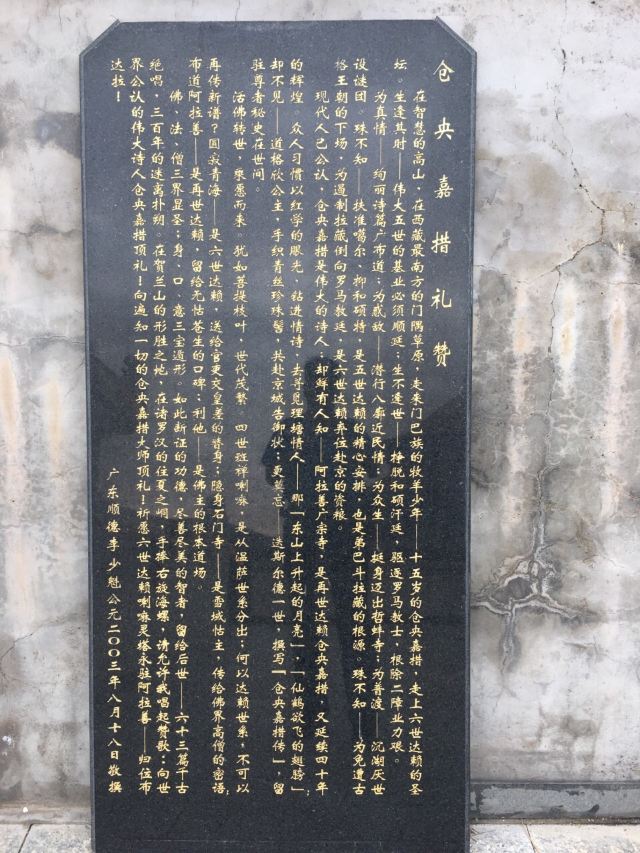 仓央嘉措礼赞
在智慧的高山,在西藏最南方的门隅草原,走来门巴族的牧羊少年——十五岁的仓央嘉措,走上六世达赖的圣
坛。生逢其时——伟大五世的基业必须顺延;生不逢世——挣脱和硕汗廷,驱逐罗马教士,根除二障业力艰。
为真情——绚丽诗篇广布道;为感敌——潜行八廓近民情;为众生——挺身迈出哲蚌寺;为普渡——沉湖厌世
设谜团。殊不知——扶准噶尔、抑和硕特,是五世达赖的精心安排,也是弟巴斗拉藏的根源。殊不知——为免遭古
格王朝的下场,为遏制拉藏倒向罗马教廷,是六世达赖弃位赴京的资粮。
现代人已公认,仓央嘉措是伟大的诗人,却鲜有人知——阿拉善广宗寺,是再世达赖仓央嘉措,又延续四十年
的辉煌。众人习惯以红学的眼光,钻进情诗,去寻见理塘情人——那「东山上升起的月亮」,「仙鹤欲飞的翅膀」
却不见——道格欣公主,手织青丝珍珠髻,共赴京城告御状;更莫忘——迭斯尔德一世,撰写「仓央嘉措传」,留
驻尊者秘史在世间。
活佛转世,乘愿而来。犹如菩提枝叶,世代茂繁。四世班禅喇嘛,是从温萨世系分出;何以达赖世系,不可以
再传新谱?圆寂青海——是六世达赖,送给官吏交皇差的替身;隐身石门寺——是雪域怙主,传给佛界高僧的密语;
布道阿拉善——是再世达赖,留给无怙苍生的口碑;利他——是佛主的根本道场。
佛、法、僧三界显圣;身、口、意三宝通形。如此断证的功德,尽善尽美的智者,留给后世——六十三篇千古
绝唱,三百年的迷离扑朔。在贺兰山的形胜之地,在诸罗汉的住夏之峒,手捧右旋海螺,请允许我唱起赞歌:向世
界公认的伟大诗人仓央嘉措顶礼!向遍知一切的仓央嘉措大师顶礼!祈愿六世达赖喇嘛灵塔永驻阿拉善——归位布
达拉!
广东顺德李少魁公元二〇〇三年八月十八日敬撰